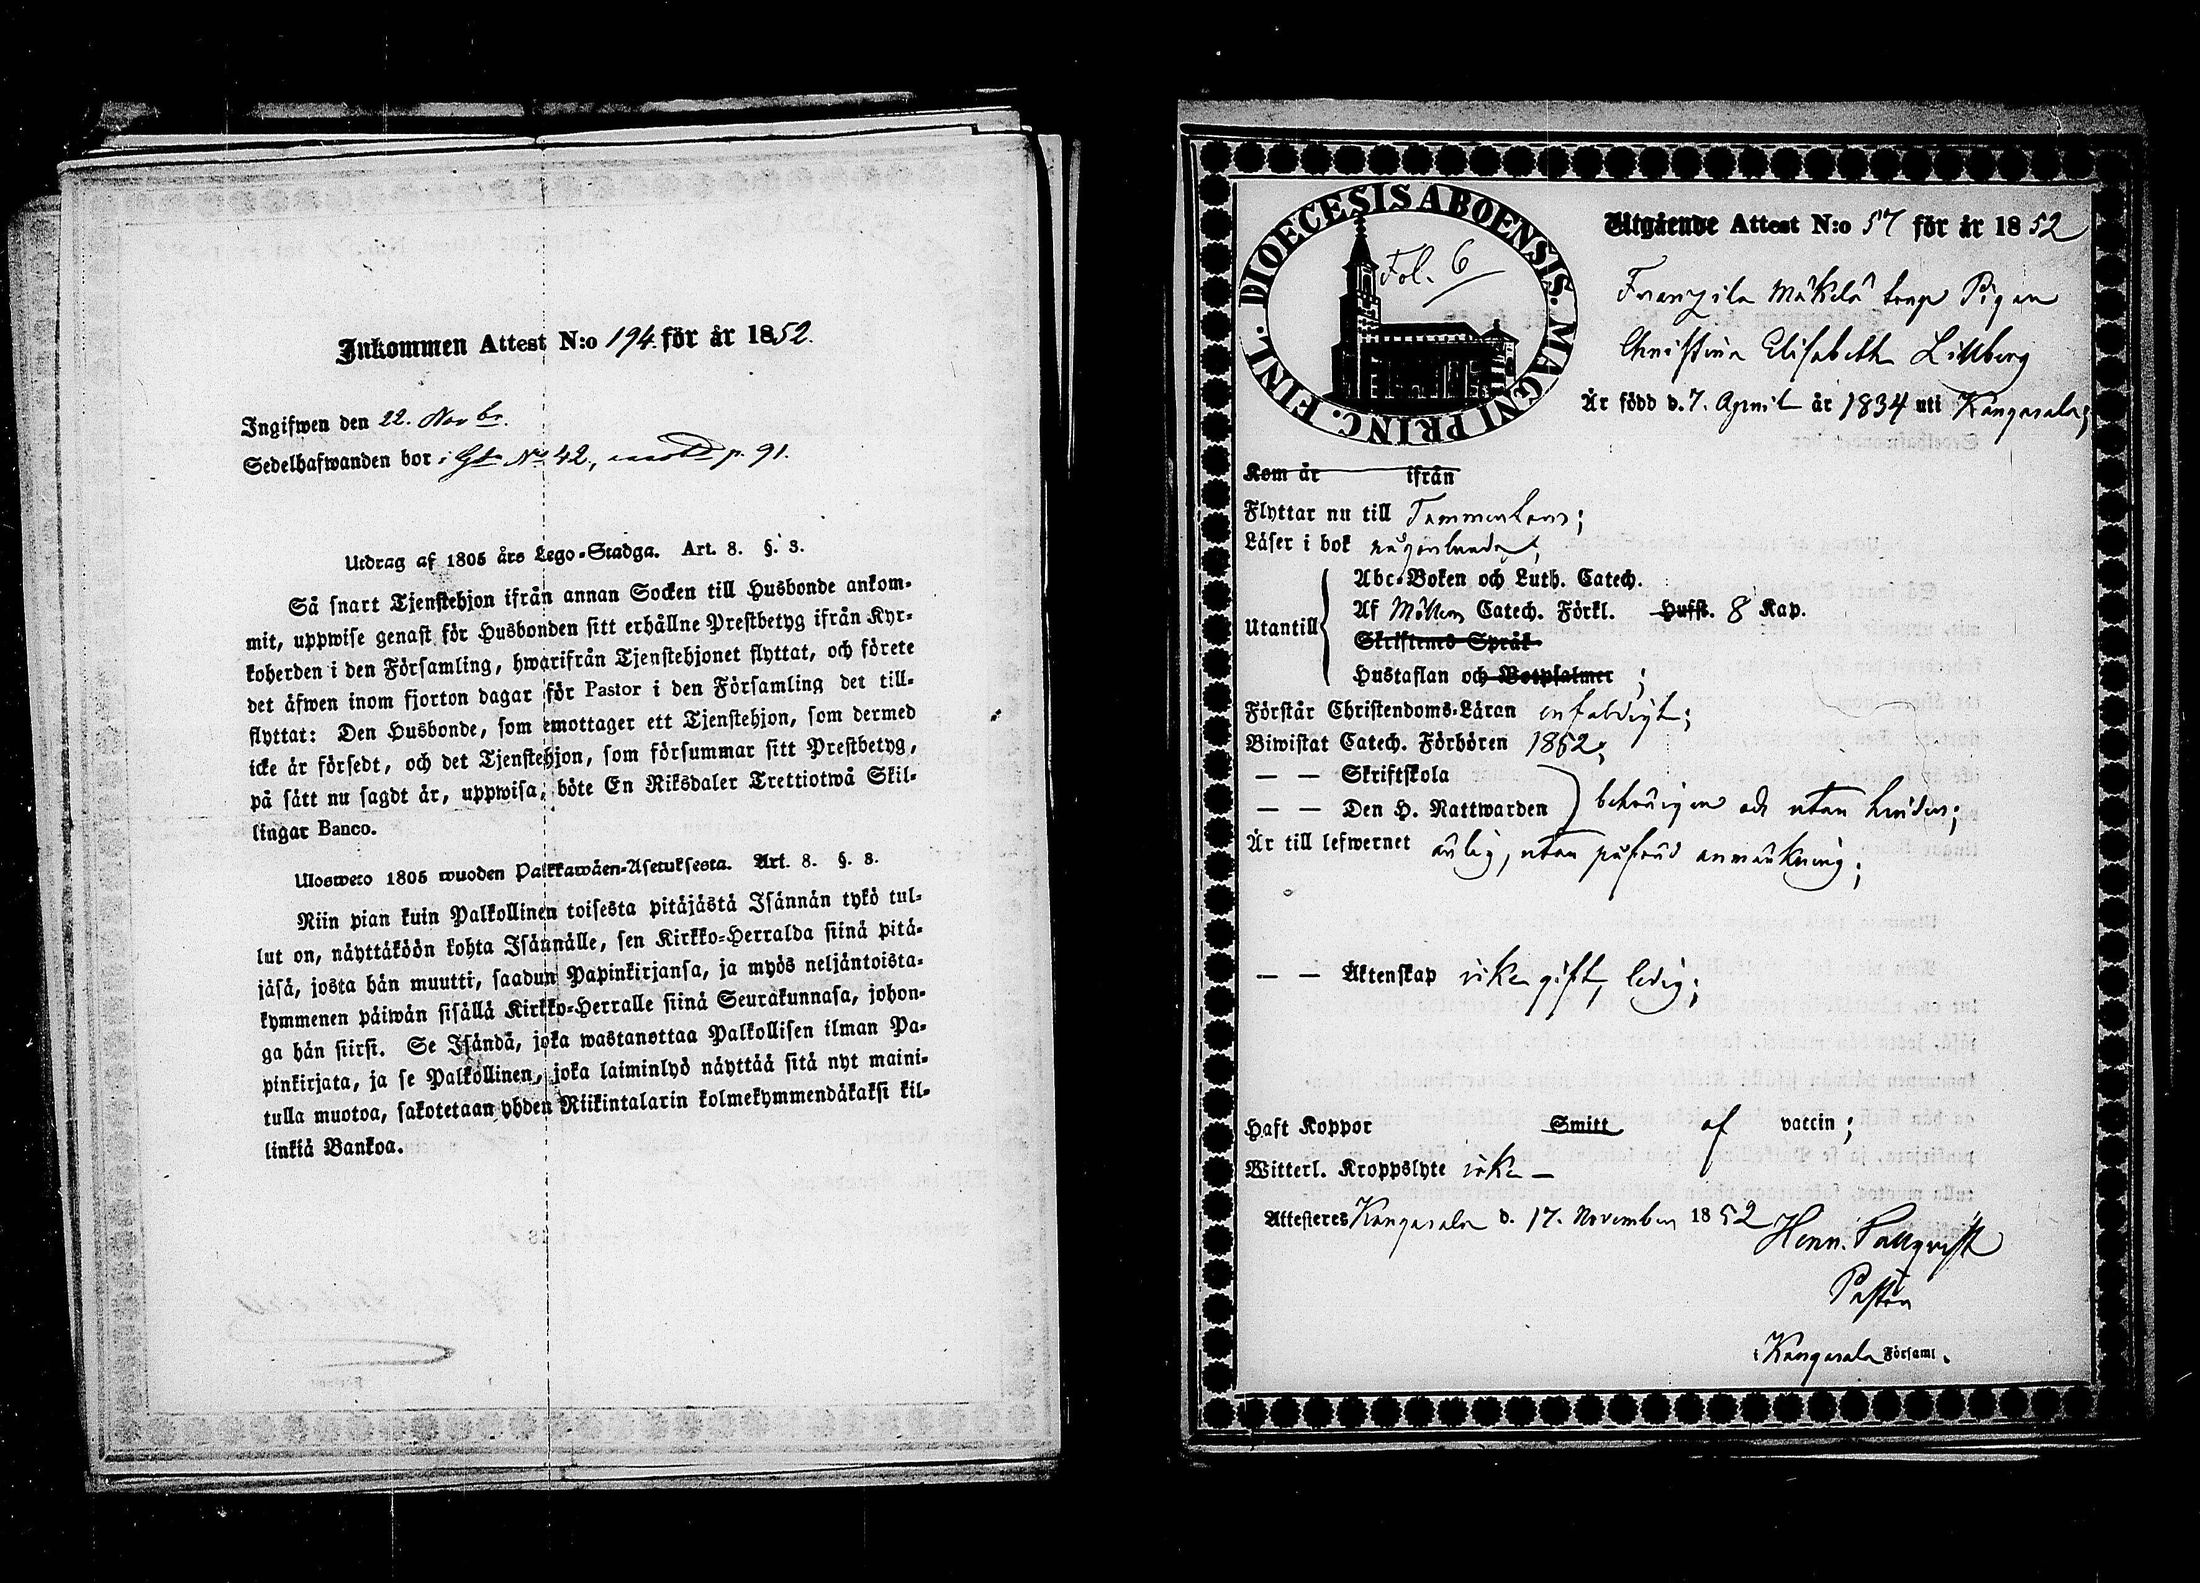 Inkommen Attest N:o 194. för år 1852.
Ingifwen den 22. Novbr.
Sedelhafwanden bor i Gdn No 42, p. 91.
Utdrag af 1805 års Lego-Stadga. Art. 8. §. 3.
Så snart Tjenstehjon ifrån annan Socken till Husbonde ankom-
mit, uppwise genast för Husbonden sitt erhållne Prestbetyg ifrån Kyr-
koherden i den Församling, hwarifrån Tjenstehjonet flyttat, och förete
det äfwen inom fjorton dagar för Pastor i den Församling det till-
flyttat: Den Husbonde, som emottager ett Tjenstehjon, som dermed
icke är försedt, och det Tjenstehjon, som försummar sitt Prestbetyg,
på sätt nu sagdt är, uppwisa, böte En Riksdaler Trettiotwå Skil-
lingar Banco.
Ulosweto 1805 wuoden Palkkawäen-Asetuksesta. Art. 8. §. 3.
Niin pian kuin Palkollinen toisesta pitäjästä Isännän tykö tul-
lut on, näyttäköön kohta Isännälle, sen Kirkko-Herralda siinä pitä-
jäsä, josta hän muutti, saadun Papinkirjansa, ja myös neljäntoista-
kymmenen päiwän sisällä Kirkko-Herralle siinä Seurakunnasa, johon-
ga hän siirsi. Se Isändä, joka wastanottaa Palkollisen ilman Pa-
pinkirjata, ja se Palkollinen, joka laiminlyö näyttää sitä nyt maini-
tulla muotoa, sakotetaan yhden Riikintalarin kolmekymmendäkaksi kil-
linkiä Bankoa.
DIOECESIS ABOENSIS. MAGNI PRINC. FINL.
Fol. 6
Utgående Attest N:o 57 för år 1852
Franzila Mäkelä torp Pigan
Christina Elisabeth Lillberg
Är född d. 7. April år 1834 uti Kangasala;
Kom år ifrån
Flyttar nu till Tammerfors;
Läser i bok någorlunda;
Utantill
Abc-Boken och Luth. Catech.
Af Möllers Catech. Förkl. Hufst. 8 Kap.
Skriftenes Språk
Hustaflan och Botpsalmer ;
Förstår Christendoms-Läran enfaldigt;
Biwistat Catech. Förhören 1852;
— — Skriftskola
— — Den H. Nattwarden behörigen och utan hinder;
Är till lefwernet ärlig, utan påförd anmärkning;
— — Äktenskap icke gift, ledig;
Haft Koppor Smitt af vaccin;
Witterl. Kroppslyte icke —
Attesteres Kangasala d. 17. November 1852
Henr. Pallqvist
Pastor
i Kangasala Församl.